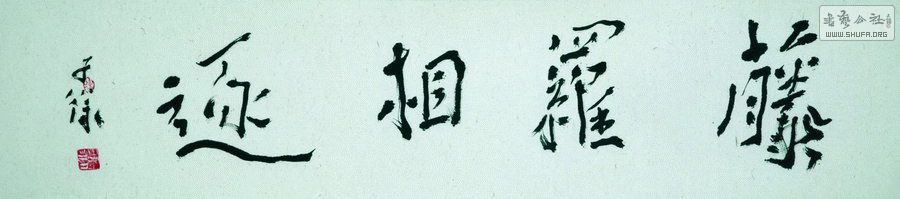 藤羅相逐
書藝公社
WWW.SHUFA.ORG